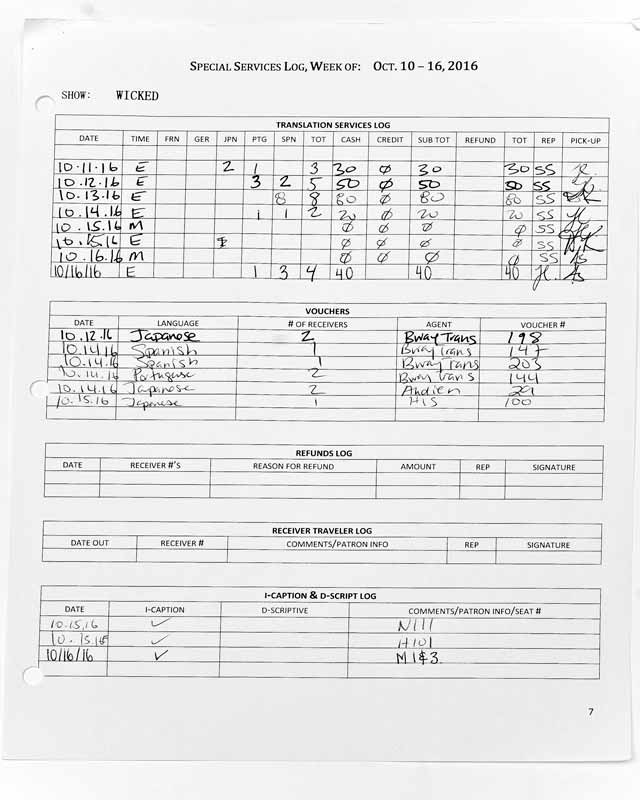 SPECIAL SERVICES LOG, WEEK OF: OCT. 10 – 16, 2016
SHOW: WICKED
TRANSLATION SERVICES LOG
DATE TIME FRN GER JPN PTG SPN TOT CASH CREDIT SUB TOT REFUND TOT REP PICK-UP
10.11.16 E 2 1 3 30 Ø 30 30 SS
10.12.16 E 3 2 5 50 Ø 50 50 SS
10.13.16 E 8 8 80 Ø 80 80 SS
10.14.16 E 1 1 2 20 Ø 20 20 SS
10.15.16 M Ø Ø Ø Ø SS
10.15.16 E Ø Ø Ø Ø SS
10.16.16 M Ø Ø Ø Ø SS
10/16/16 E 1 3 4 40 40 40
VOUCHERS
DATE LANGUAGE # OF RECEIVERS AGENT VOUCHER #
10.12.16 Japanese 2 Bway Trans 198
10.14.16 Spanish 1 Bway Trans 147
10.14.16 Spanish 1 Bway Trans 203
10.14.16 Portugese 2 Bway Trans 144
10.14.16 Japanese 2
10.15.16 Japanese 1 HIS 100
REFUNDS LOG
DATE RECEIVER #'S REASON FOR REFUND AMOUNT REP SIGNATURE
RECEIVER TRAVELER LOG
DATE OUT RECEIVER # COMMENTS/PATRON INFO REP SIGNATURE
I-CAPTION & D-SCRIPT LOG
DATE I-CAPTION D-SCRIPTIVE COMMENTS/PATRON INFO/SEAT #
10.15.16 ✓ N111
10.15.16 ✓ H101
10/16/16 ✓ M 1&3
7